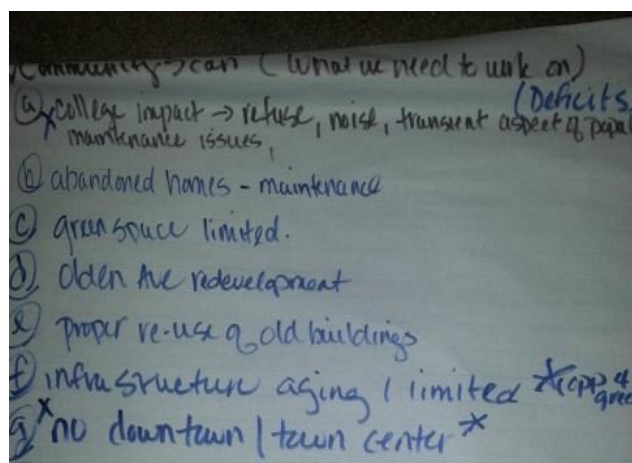 Community Scan (What we need to work on)
(Deficits
ⓐ x college impact → refuse, noise, transient aspect of popul
maintenance issues,
ⓑ abandoned homes - maintenance
ⓒ green space limited.
ⓓ Olden Ave redevelopment
ⓔ proper re-use of old buildings
ⓕ infrastructure aging / limited * (opp 4
gree
ⓖ x no downtown / town center *